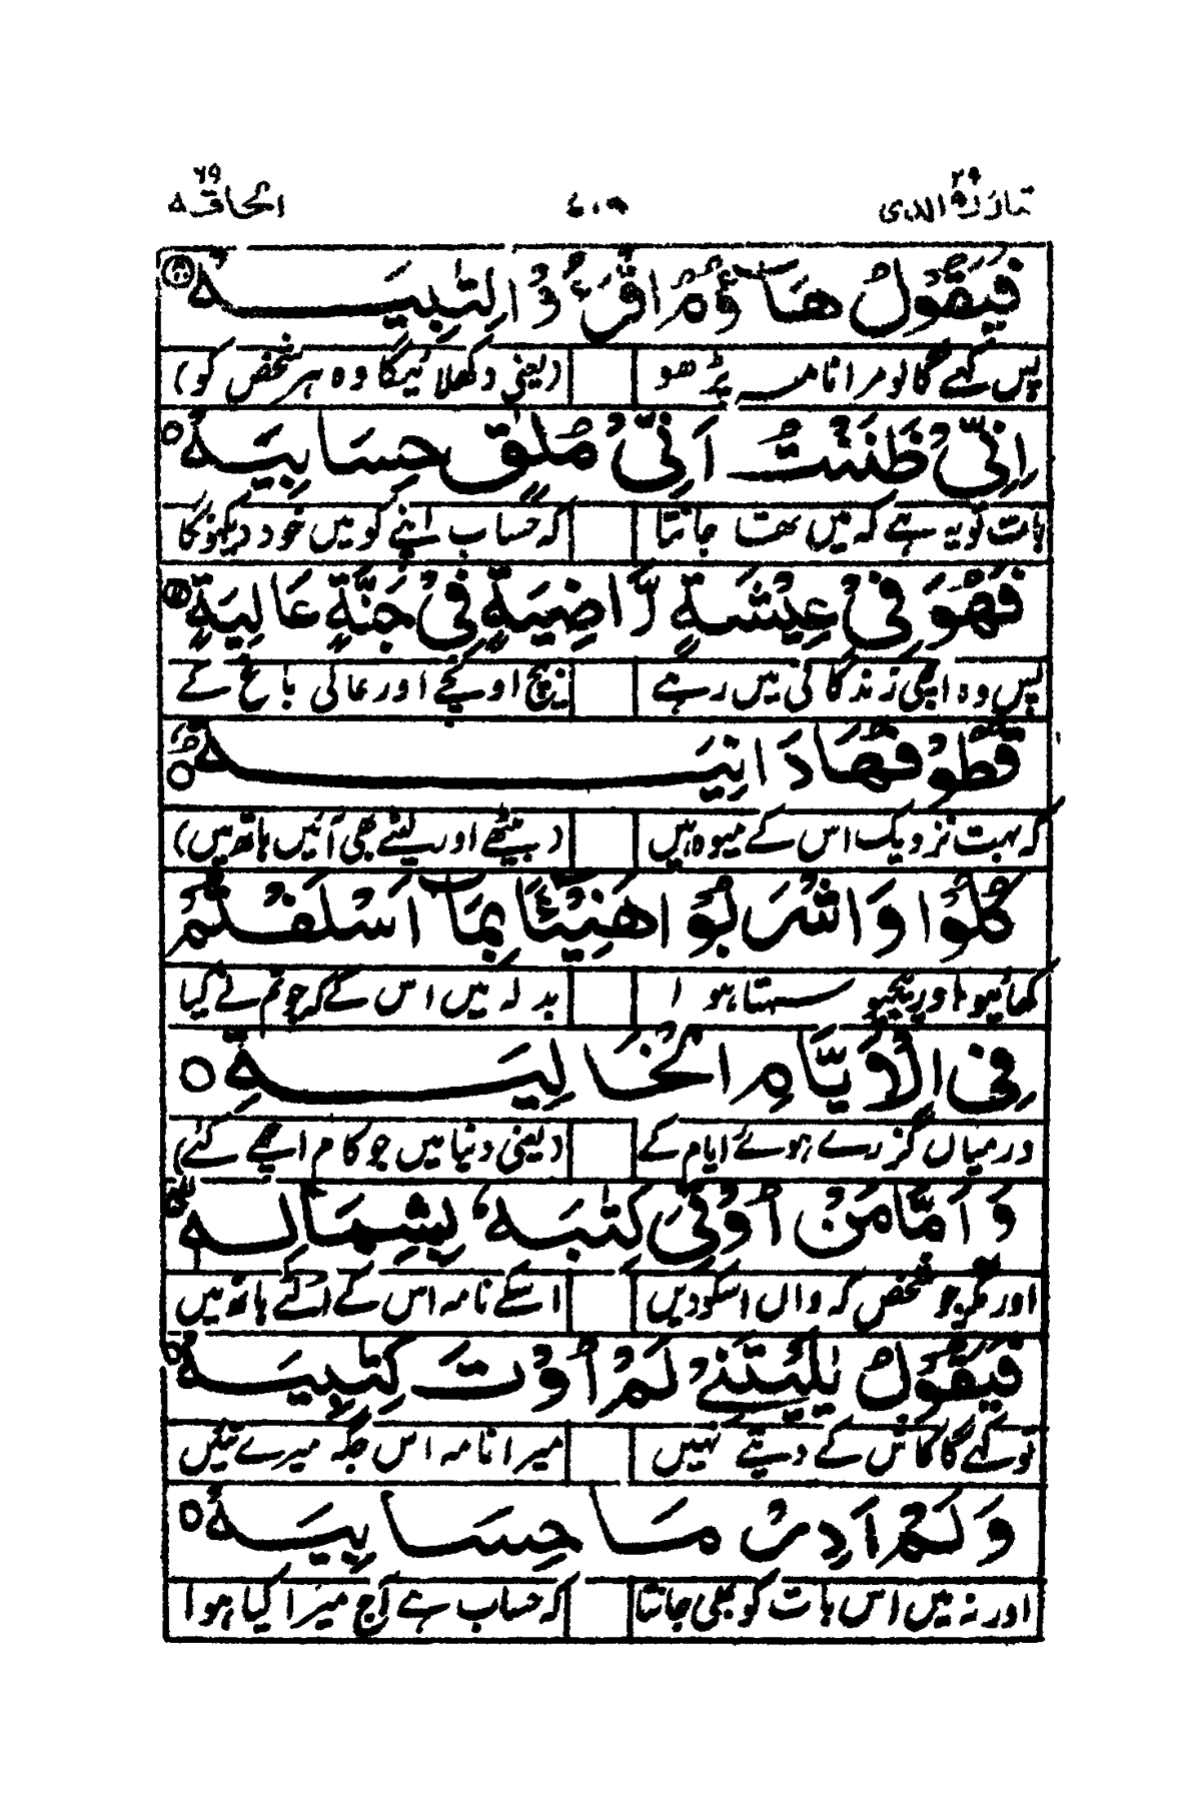 تبارك الذى ٢٩ ٤٠٩ الحاقة ٦٩
فَيَقُوْلُ هَآؤُمُ اقْرَءُوْا كِتٰبِيَهْ
پس کہے گا لو مرا نامہ پڑھو (یعنی دکھلائیگا وہ ہر شخص کو)
اِنِّیْ ظَنَنْتُ اَنِّیْ مُلٰقٍ حِسَابِيَهْ
بات تو یہ ہے کہ میں تھا جانتا کہ حساب اپنے کو میں خود دیکھونگا
فَهُوَ فِیْ عِيْشَةٍ رَّاضِيَةٍ فِیْ جَنَّةٍ عَالِيَةٍ
پس وہ اچھی زندگانی میں رہے بیچ اونچے اور عالی باغ کے
قُطُوْفُهَا دَانِيَةٌ
کہ بہت نزدیک اس کے میوہ ہیں (بیٹھے اور لیٹے بھی آئیں ہاتھ میں)
كُلُوْا وَاشْرَبُوْا هَنِيْٓئًا بِمَآ اَسْلَفْتُمْ
کھائیو اور پیجیو سہتا ہوا بدلہ میں اس کے کہ جو تم نے کیا
فِی الْاَيَّامِ الْخَالِيَةِ
درمیاں گزرے ہوئے ایام کے (یعنی دنیا میں جو کام اچھے کئے)
وَاَمَّا مَنْ اُوْتِیَ كِتٰبَهٗ بِشِمَالِهٖ
اور مگر جو شخص کہ واں اسکو دیں اسکے نامہ اس کے الٹے ہاتھ میں
فَيَقُوْلُ يٰلَيْتَنِیْ لَمْ اُوْتَ كِتٰبِيَهْ
تو کہے گا کاش کے دیتے نہیں میرا نامہ اس جگہ میرے تئیں
وَلَمْ اَدْرِ مَا حِسَابِيَهْ
اور نہ میں اس بات کو بھی جانتا کہ حساب ہے آج میرا کیا ہوا